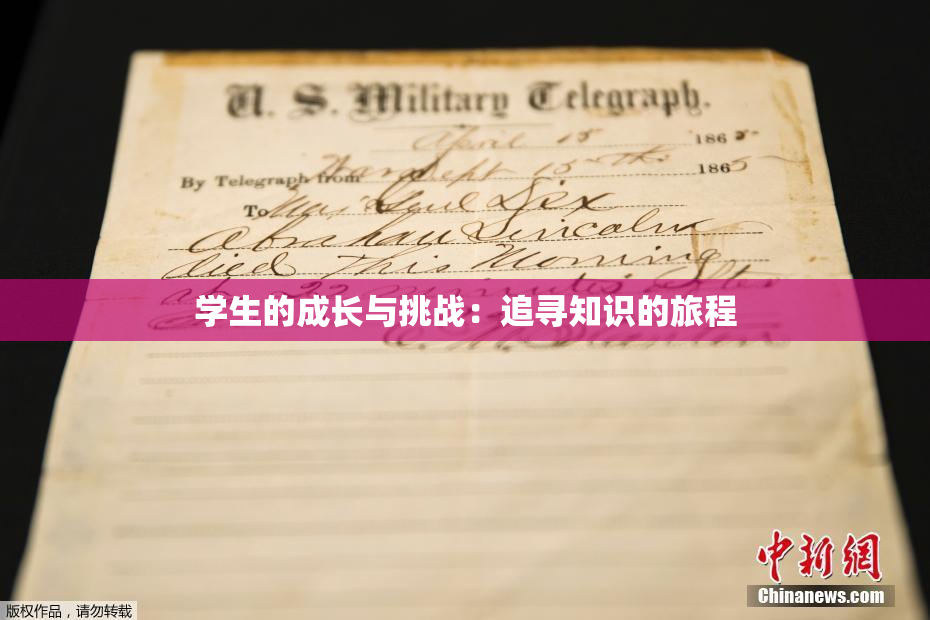 U. S. Military Telegraph.
April 15 1865
By Telegraph from War Dept 15th 1865
To Maj Genl Dix
Abraham Lincoln
died This Morning
at 22 minutes after
学生的成长与挑战：追寻知识的旅程
中新网
Chinanews.com
版权作品，请勿转载